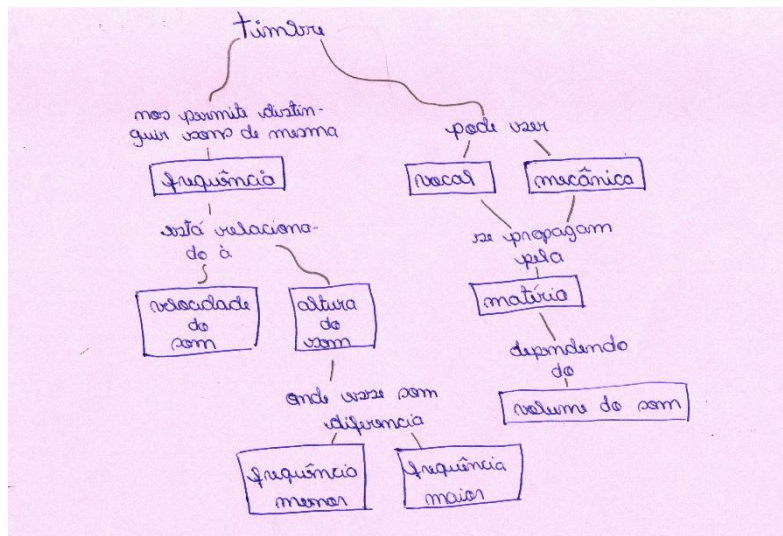 timbre
nos permite distin-
guir sons de mesma
frequência
está relaciona-
do à
velocidade
do
som
altura
do
som
onde esse som
diferencia
frequência
menor
frequência
maior
pode ser
vocal
mecânica
se propagam
pela
matéria
dependendo
do
volume do som